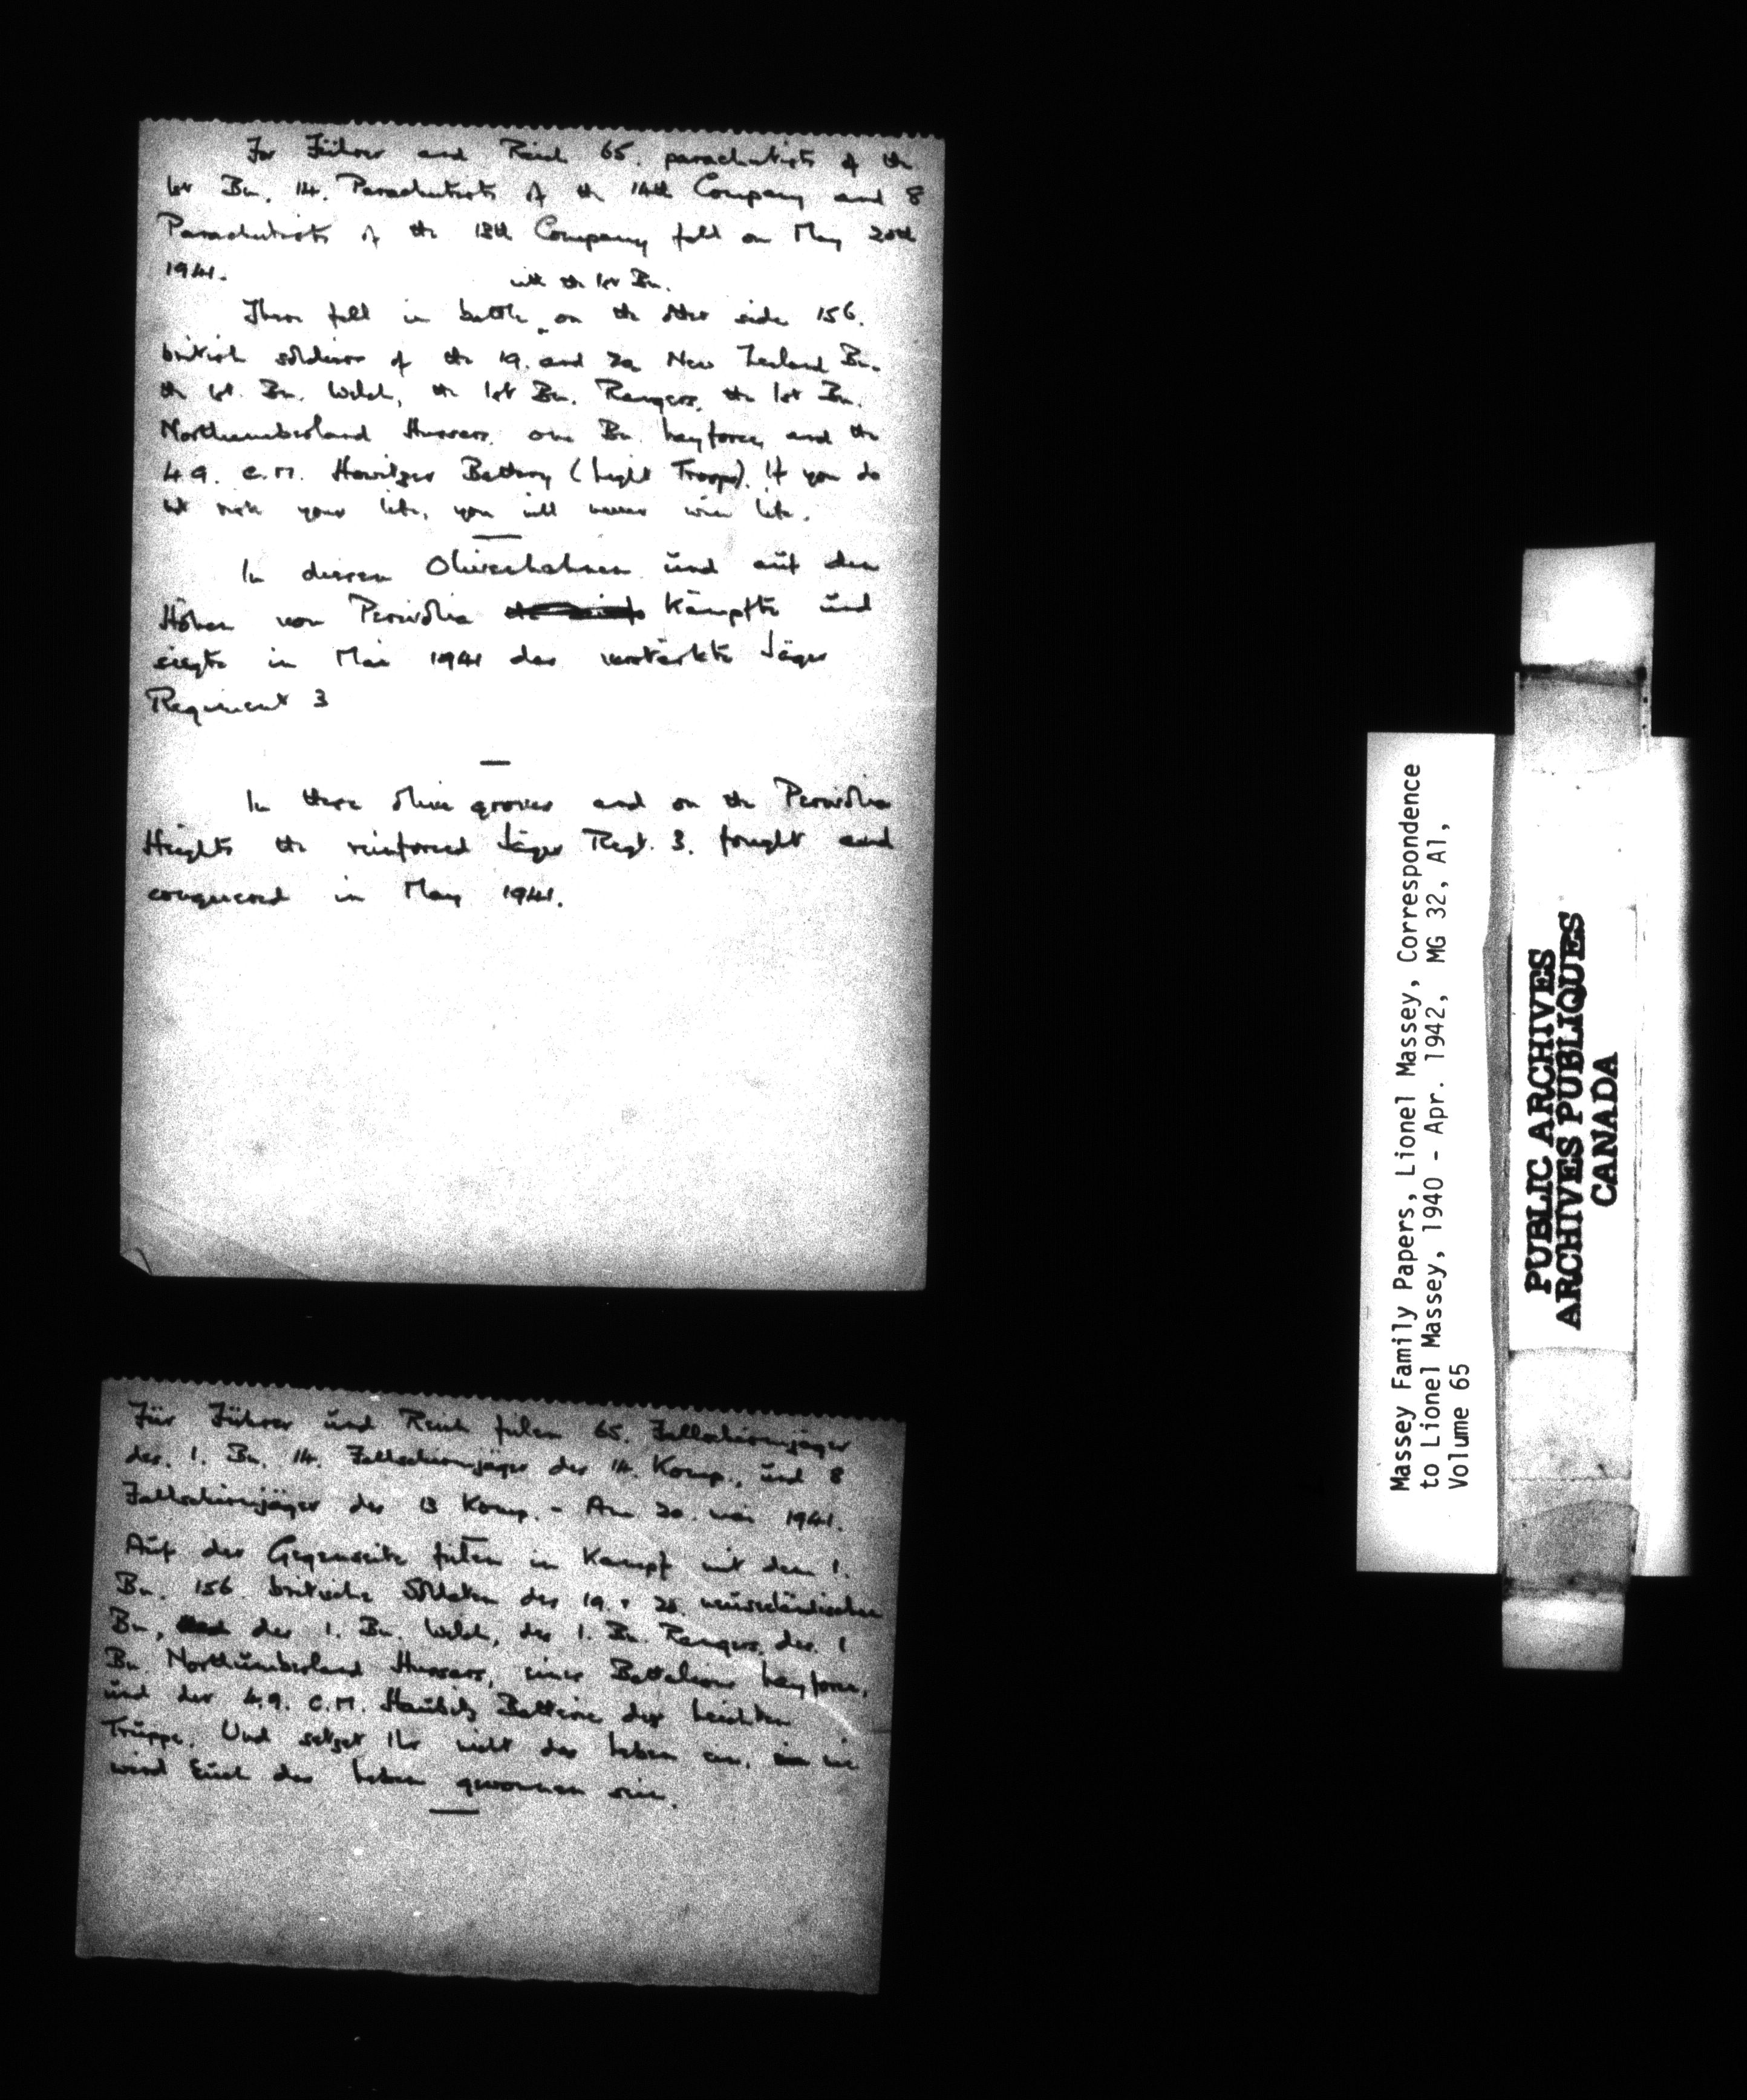 For Führer and Reich 65. parachutists of the
1st Bn. 14. Parachutists of the 14th Company and 8
Parachutists of the 13th Company fell on May 20th
1941.
with the 1st Bn.
There fell in battle on the other side 156.
british soldiers of the 19. and 20 New Zealand Bn.
the 1st. Bn. Welch, the 1st Bn. Rangers, the 1st Bn.
Northumberland Hussars, one Bn. Layforce, and the
4.9. C.M. Howitzer Battery (Light Troops). If you do
not risk your life, you will never win life.
In diesen Olivenhahnen und auf den
Höhen von Perivolia kämpfte und
siegte in Mai 1941 das verstärkte Jäger
Regiment 3
In these olive groves and on the Perivolia
Heights the reinforced Jäger Regt. 3. fought and
conquered in May 1941.
Für Führer und Reich fielen 65. Fallschirmjäger
des. 1. Bn. 14. Fallschirmjäger der 14. Komp., und 8
Fallschirmjäger der 13 Komp. - Am 20. Mai 1941.
Auf der Gegenseite fielen in Kampf mit dem 1.
Bn. 156 britische Soldaten der 19. + 20. neuseeländischen
Bn, des 1. Bn. Welch, des 1. Bn. Rangers, des. 1
Bn. Northumberland Hussars, eines Battalions Layforce,
und der 4.9. C.M. Haubitz Batterie der leichten
Truppe. Und setzet Ihr nicht das Leben ein, nie
wird Euch das Leben gewonnen sein.
Massey Family Papers, Lionel Massey, Correspondence
to Lionel Massey, 1940 - Apr. 1942, MG 32, A1,
Volume 65
PUBLIC ARCHIVES
ARCHIVES PUBLIQUES
CANADA